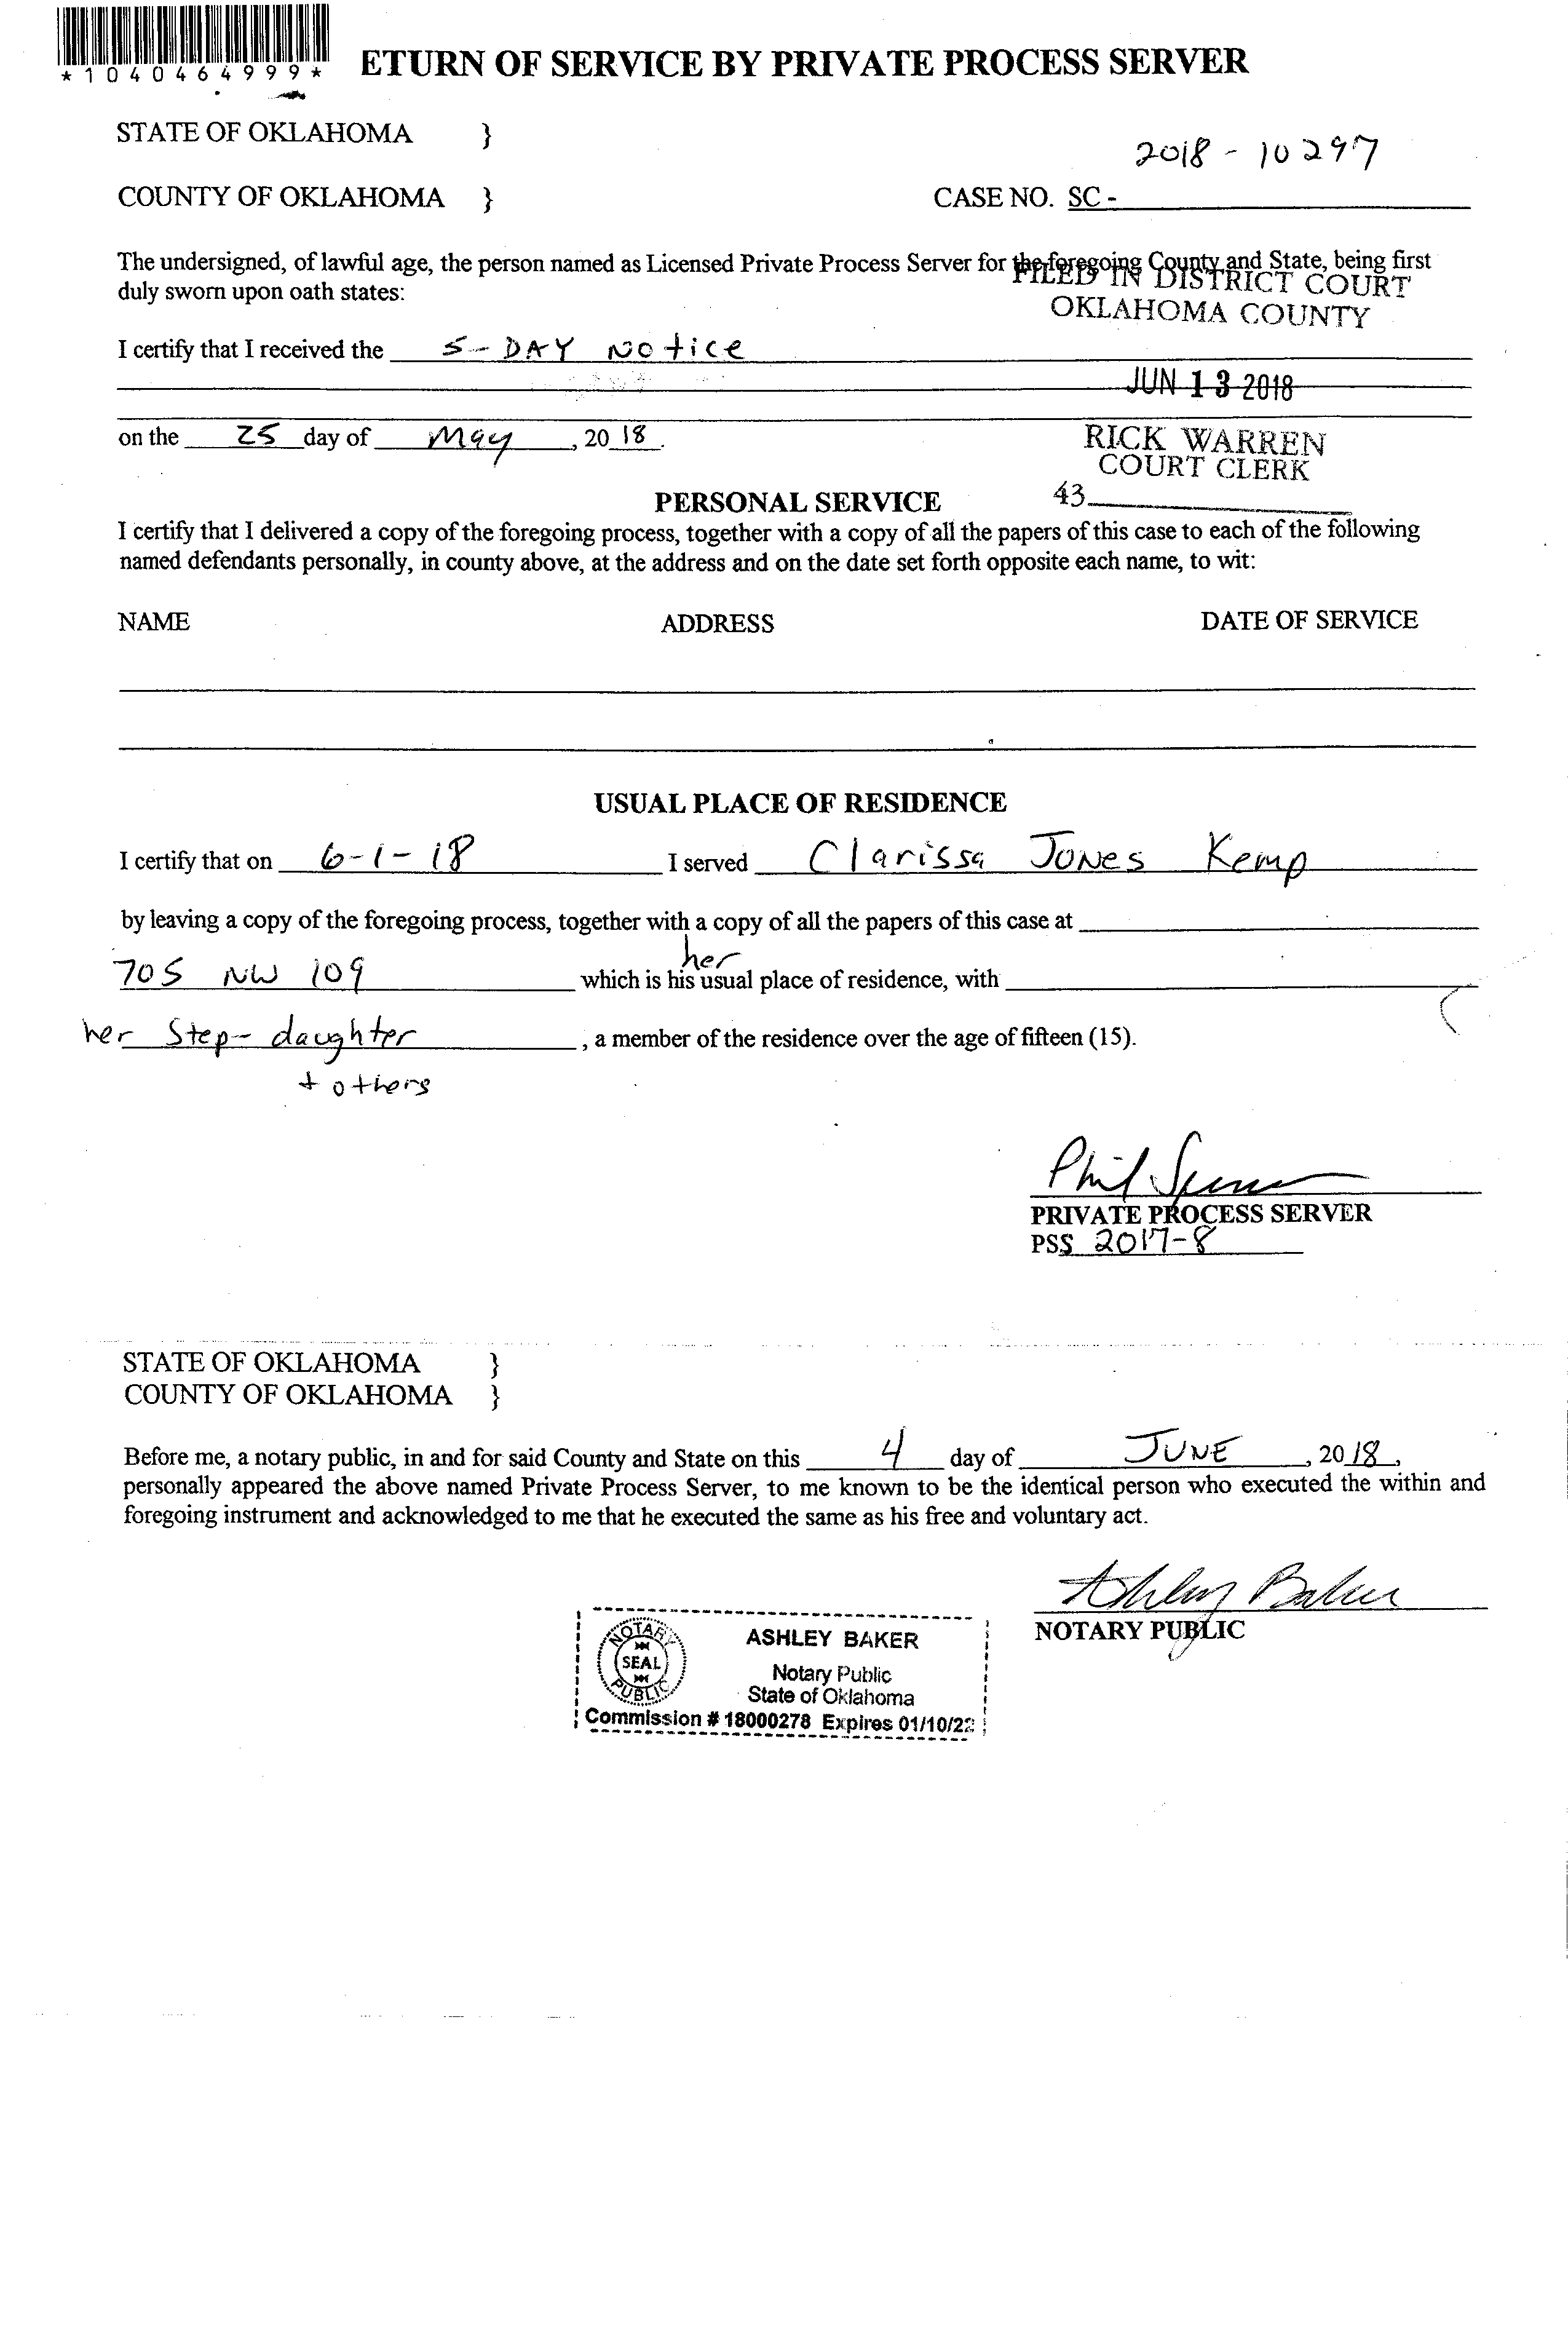 *1040464999*
ETURN OF SERVICE BY PRIVATE PROCESS SERVER
STATE OF OKLAHOMA }
2018-10297
COUNTY OF OKLAHOMA } CASE NO. SC -
The undersigned, of lawful age, the person named as Licensed Private Process Server for the foregoing County and State, being first
FILED IN DISTRICT COURT
duly sworn upon oath states:
OKLAHOMA COUNTY
I certify that I received the 5-DAY Notice
JUN 13 2018
on the 25 day of May, 20 18.
RICK WARREN
COURT CLERK
43
PERSONAL SERVICE
I certify that I delivered a copy of the foregoing process, together with a copy of all the papers of this case to each of the following
named defendants personally, in county above, at the address and on the date set forth opposite each name, to wit:
NAME ADDRESS DATE OF SERVICE
USUAL PLACE OF RESIDENCE
I certify that on 6-1-18 I served Clarissa Jones Kemp
by leaving a copy of the foregoing process, together with a copy of all the papers of this case at
her
705 NW 109 which is his usual place of residence, with
her Step-daughter, a member of the residence over the age of fifteen (15).
+ others
Phil
PRIVATE PROCESS SERVER
PSS 2017-8
STATE OF OKLAHOMA }
COUNTY OF OKLAHOMA }
Before me, a notary public, in and for said County and State on this 4 day of JUNE, 20 18,
personally appeared the above named Private Process Server, to me known to be the identical person who executed the within and
foregoing instrument and acknowledged to me that he executed the same as his free and voluntary act.
Ashley Baker
NOTARY PUBLIC
NOTARY PUBLIC SEAL
ASHLEY BAKER
Notary Public
State of Oklahoma
Commission # 18000278 Expires 01/10/22